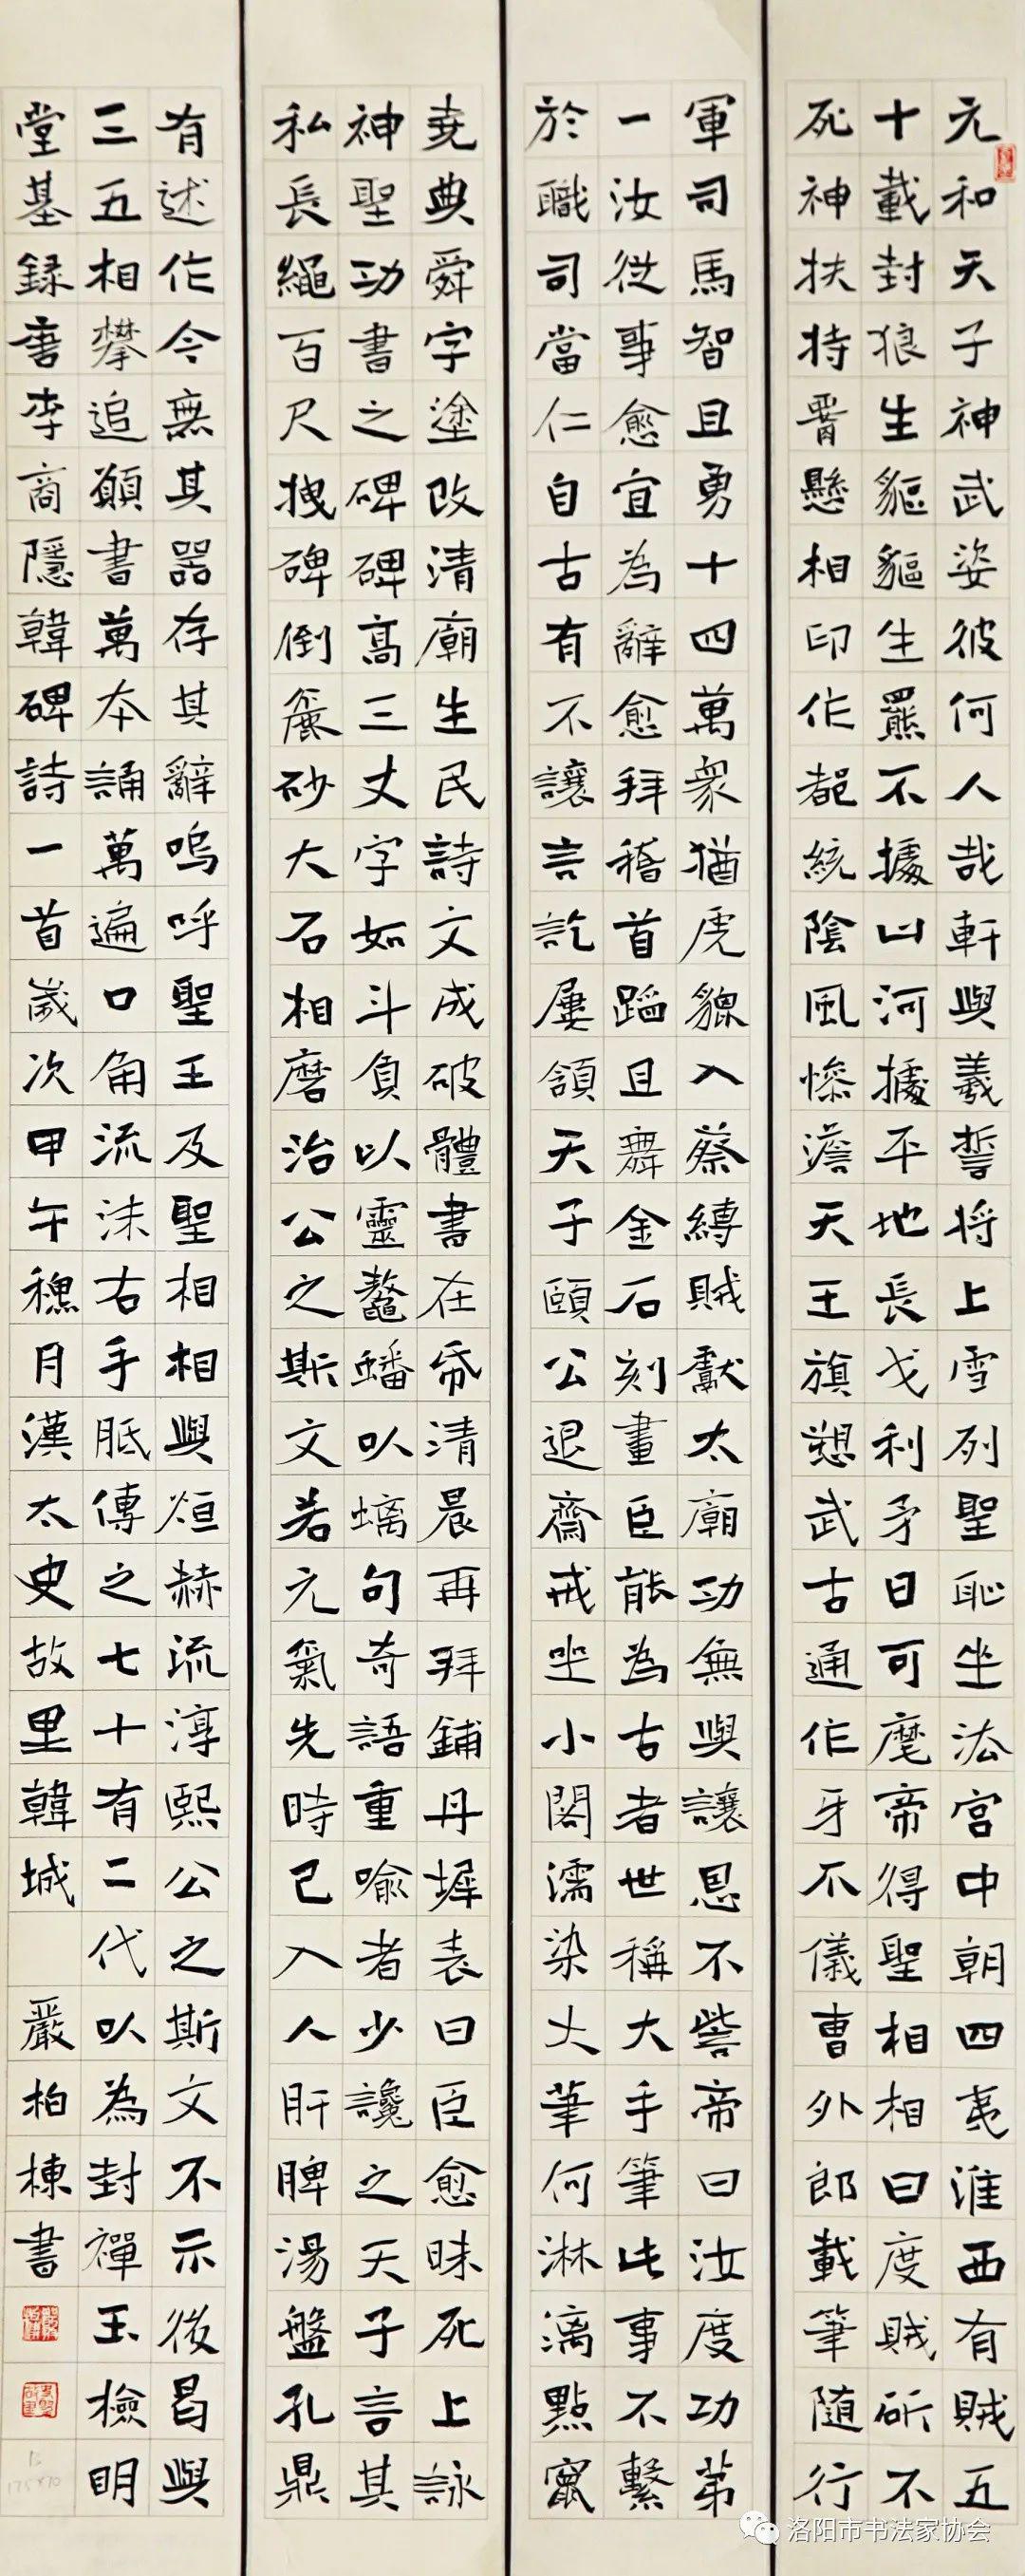 元和天子神武姿彼何人哉軒與羲誓将上雪列聖恥坐法宮中朝四夷淮西有賊五
十載封狼生貙貙生羆不據山河據平地長戈利矛日可麾帝得聖相相曰度賊斫不
死神扶持腰懸相印作都統陰風慘澹天王旗愬武古通作牙不儀曹外郎載筆随行
軍司馬智且勇十四萬衆猶虎貔入蔡縛賊獻太廟功無與讓恩不訾帝曰汝度功第
一汝從事愈宜為辭愈拜稽首蹈且舞金石刻畫臣能為古者世稱大手筆此事不繫
於職司當仁自古有不讓言訖屢頷天子頤公退齋戒坐小閣濡染大筆何淋漓點竄
堯典舜字塗改清廟生民詩文成破體書在帋清晨再拜鋪丹墀表曰臣愈昧死上詠
神聖功書之碑碑高三丈字如斗負以靈鼇蟠以螭句奇語重喻者少讒之天子言其
私長繩百尺拽碑倒麤砂大石相磨治公之斯文若元氣先時已入人肝脾湯盤孔鼎
有述作今無其器存其辭嗚呼聖王及聖相相與烜赫流淳熙公之斯文不示後曷與
三五相攀追願書萬本誦萬遍口角流沫右手胝傳之七十有二代以為封禪玉檢明
堂基録唐李商隱韓碑詩一首歲次甲午穐月漢太史故里韓城 嚴柏棟書
洛阳市书法家协会